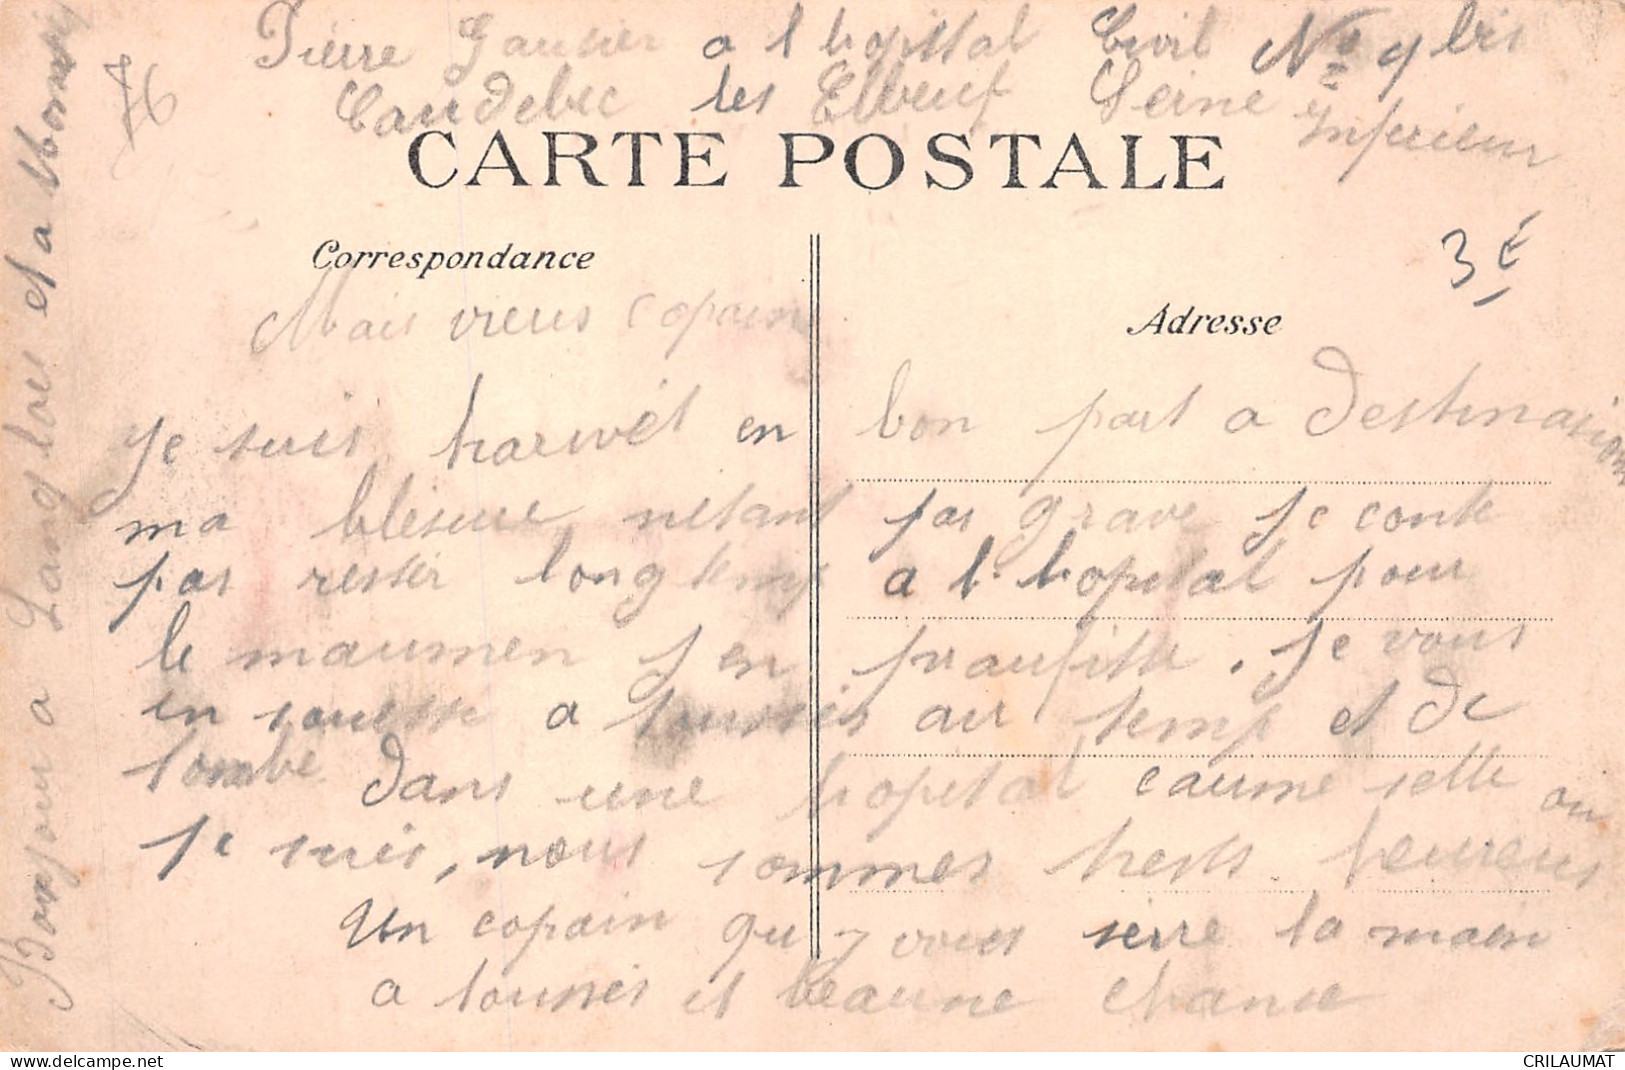 Pierre Gautier a l hopistal Civil N° 9 bis
Caudebec les Elbeuf Seine Inferieur
76
CARTE POSTALE
Correspondance
Adresse
3 €
Mais vieus copain
Je suis harivét en bon part a destinasion
ma blésure nétant pas grave je conte
pas rester longtemp a l hopistal pour
le maumen j en praufitte. Je vous
en souette a tousses au temp et de
tombé dans une hopital caume sette ou
je suis, nous sommes tress heureus
Un copain qui vous serre la main
a tousses et beaune chance
Bonjour a Langlois et a
delcampe.net
CRILAUMAT